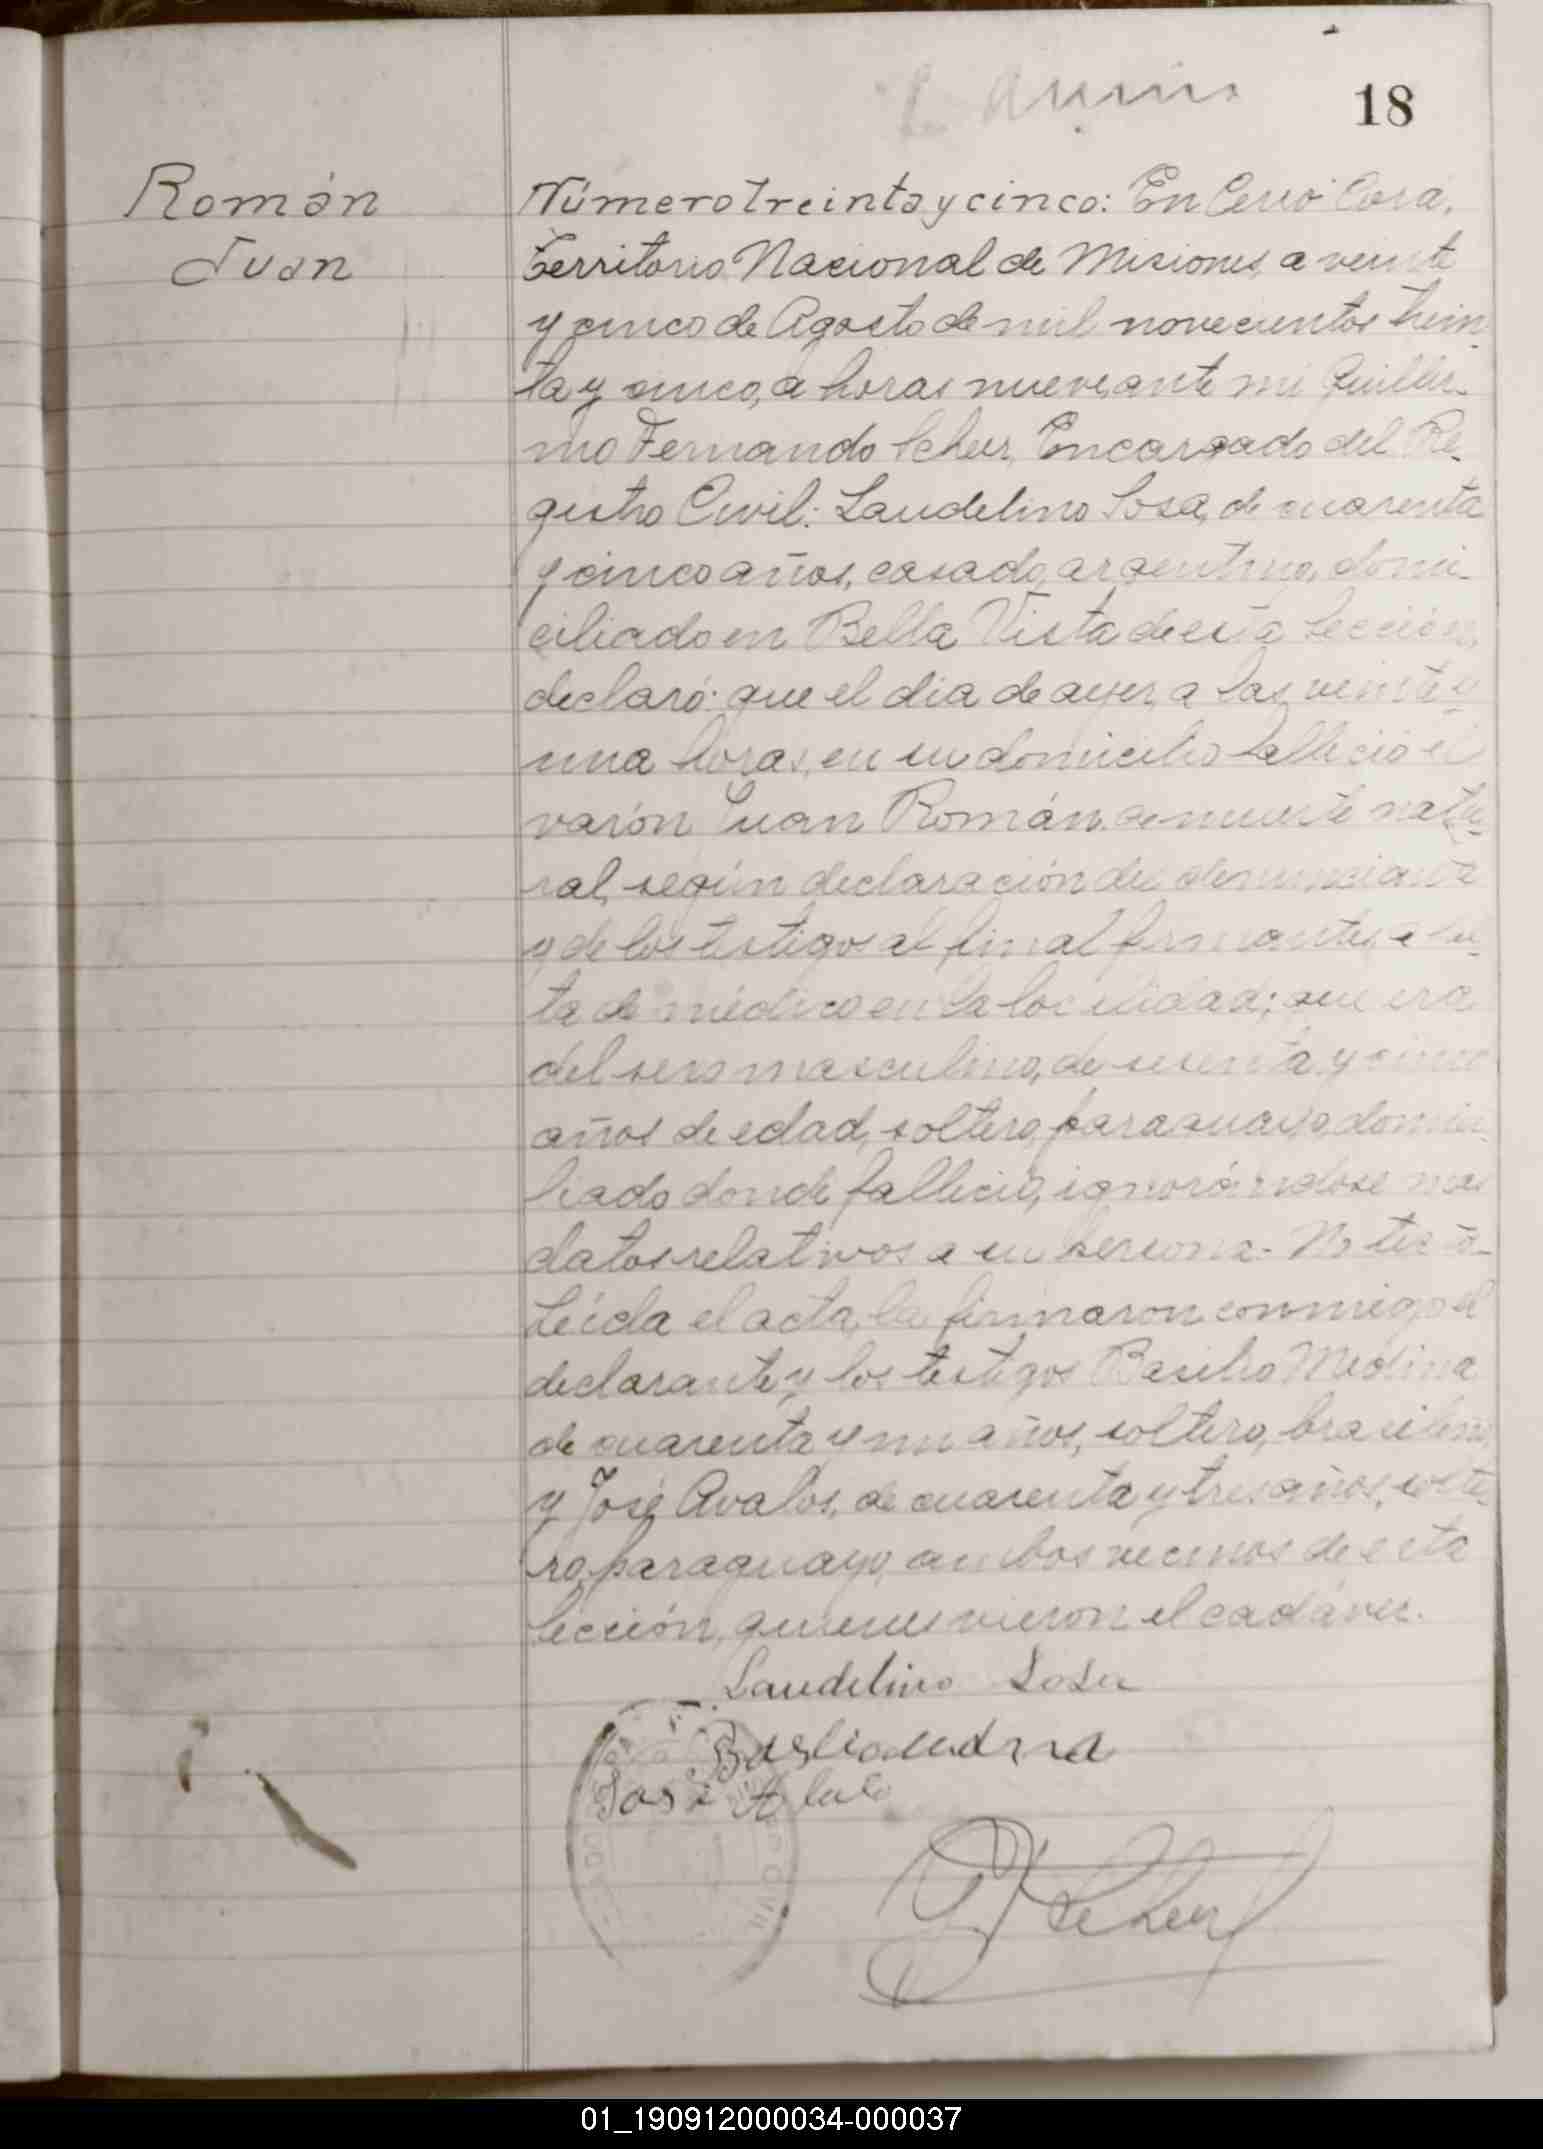 18
Román
Juan
Número treinta y cinco: En Cerro Corá,
Territorio Nacional de Misiones, a veinte
y cinco de Agosto de mil novecientos trein-
ta y cinco, a horas nueve, ante mi Guiller-
mo Fernando Scheur, Encargado del Re-
gistro Civil: Laudelino Sosa, de cuarenta
y cinco años, casado, argentino, domi-
ciliado en Bella Vista de esta Sección,
declaró: que el dia de ayer, a las veinte y
una horas, en su domicilio falleció el
varón Juan Román, de muerte natu-
ral, según declaración del denunciante
y de los testigos al final firmantes, a fal-
ta de médico en la localidad; que era
del sexo masculino, de sesenta y cinco
años de edad, soltero, paraguayo, domici-
liado donde falleció, ignorándose mas
datos relativos a su persona. No testó.
Leída el acta, la firmaron conmigo el
declarante y los testigos Basilio Medina
de cuarenta y un años, soltero, brasileño,
y José Avalos, de cuarenta y tres años, solte-
ro, paraguayo, ambos vecinos de esta
Sección, quienes vieron el cadáver.
Laudelino Sosa
José
01_190912000034-000037